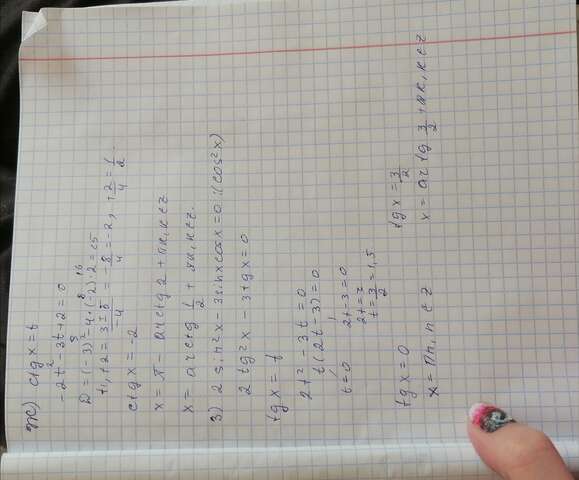 ж) ctg x = t
-2t² - 3t + 2 = 0
D = (-3)² - 4·(-2)·2 = 25
t₁, t₂ = (3 ± 5)/(-4) = -8/4 = -2, 2/4 = 1/2.
ctg x = -2
x = π - arcctg 2 + πk, k∈Z
x = arcctg 1/2 + πk, k∈Z.
3) 2 sin²x - 3 sin x cos x = 0 :(cos²x)
2 tg²x - 3 tg x = 0
tg x = t
2t² - 3t = 0
t(2t - 3) = 0
t = 0 2t - 3 = 0
t = 3/2 = 1,5
tg x = 0 tg x = 3/2
x = πn, n ∈ Z x = arctg 3/2 + πk, k∈Z